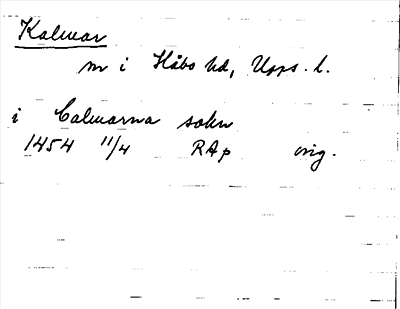 Kalmar
sn i Håbo hd, Upps. l.
i Calmarna sokn
1454 11/4 RAp orig.